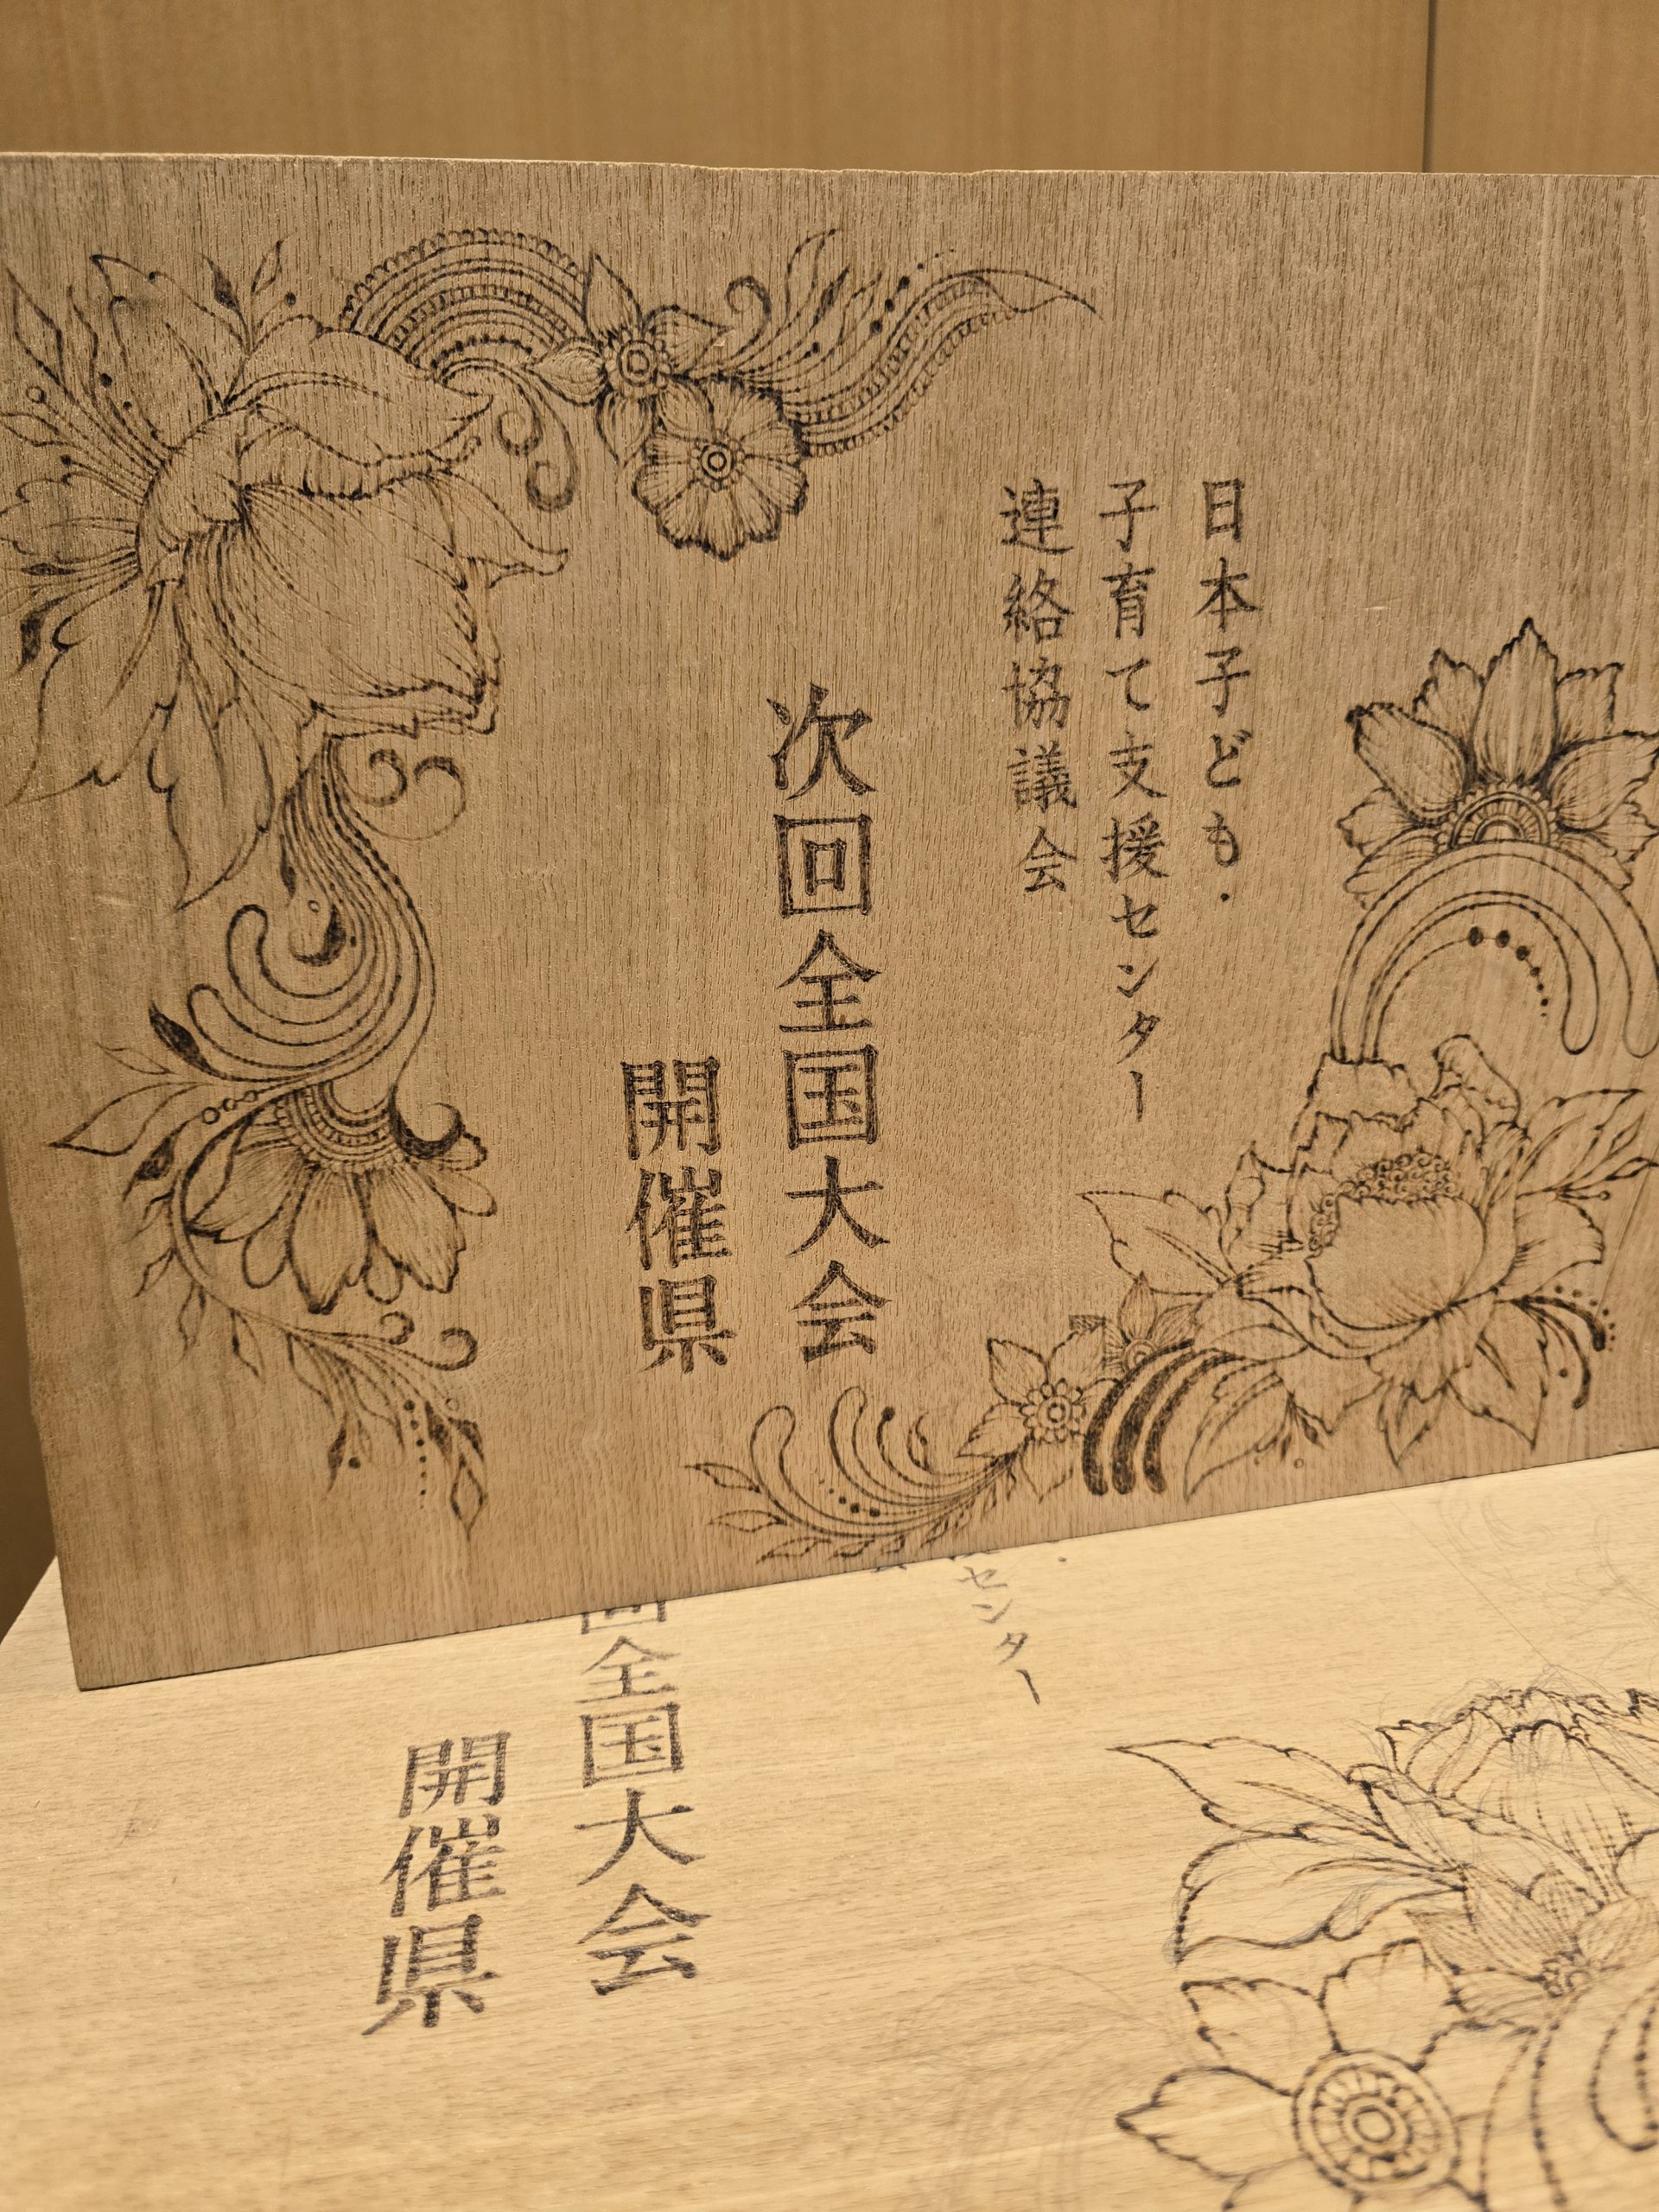 日本子ども・
子育て支援センター
連絡協議会
次回全国大会
開催県
センター
回全国大会
開催県